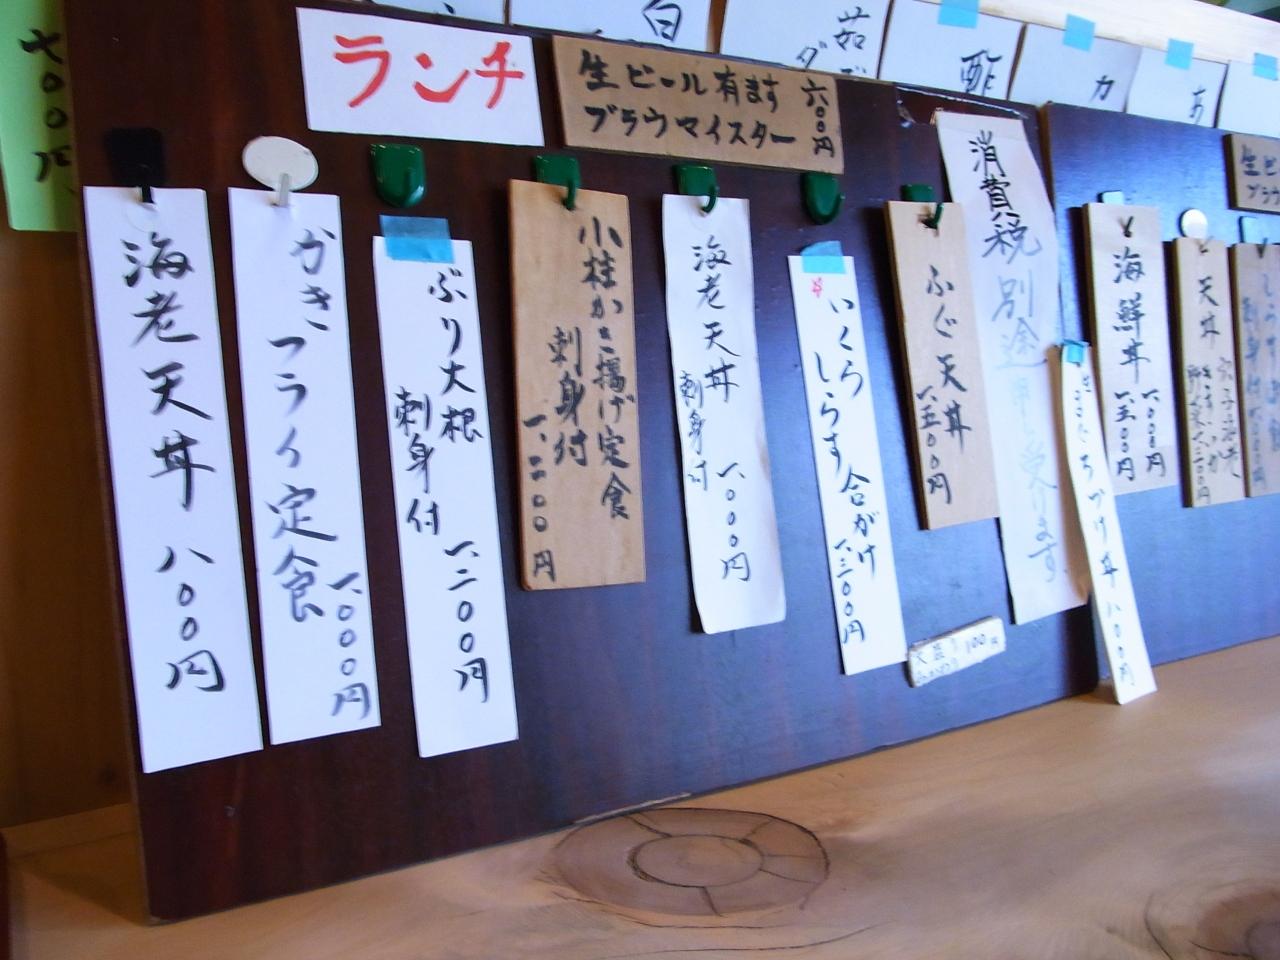 ランチ
生ビール有ます 六〇〇円
ブラウマイスター
海老天丼 八〇〇円
かきフライ定食
一、〇〇〇円
ぶり大根
刺身付 一、二〇〇円
小柱かき揚げ定食
刺身付
一、二〇〇円
海老天丼 一、〇〇〇円
刺身付
いくら
しらす 合がけ
一、三〇〇円
ふぐ天丼
一、五〇〇円
消費税別途申し受けます
海鮮丼
一、〇〇〇円
一、五〇〇円
天丼
づけ丼 八〇〇円
大盛り 100円
白
酢
カ
七〇〇円